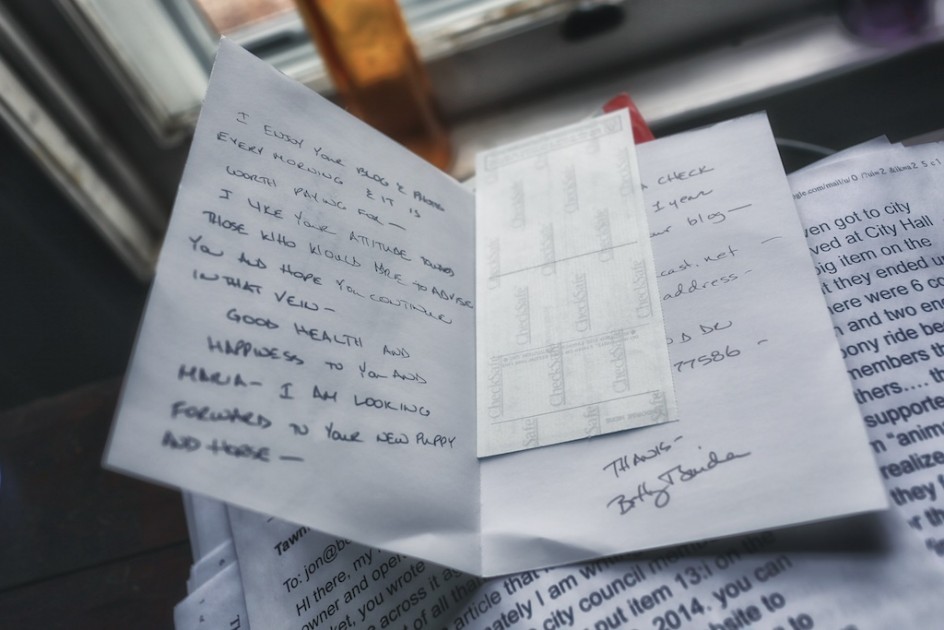 I ENJOY YOUR BLOG & PHOTOS
EVERY MORNING & IT IS
WORTH PAYING FOR —
I LIKE YOUR ATTITUDE TOWARDS
THOSE WHO WOULD LIKE TO ADVISE
YOU AND HOPE YOU CONTINUE
IN THAT VEIN —
GOOD HEALTH AND
HAPPINESS TO YOU AND
MARIA — I AM LOOKING
FORWARD TO YOUR NEW PUPPY
AND HORSE —
CheckSafe
CheckSafe
CheckSafe
CheckSafe
CheckSafe
CheckSafe
A CHECK
1 year
blog —
cast.net —
address —
DR
77586 —
THANKS —
ven got to city
ved at City Hall
big item on the
t they ended u
ere were 6 co
n and two en
pony ride be
members th
thers.... th
supporte
n "anim
realize
they f
To: jon@b
HI there, my
owner and oper
ket, you wrote
across it a
of all tha
article that
ately I am wh
city council mem
put item 13:i on the
2014. you can
bsite to
to